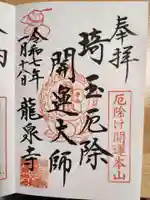 奉拝
厄除け開運本山
埼玉厄除
開運大師
龍泉寺
令和七年